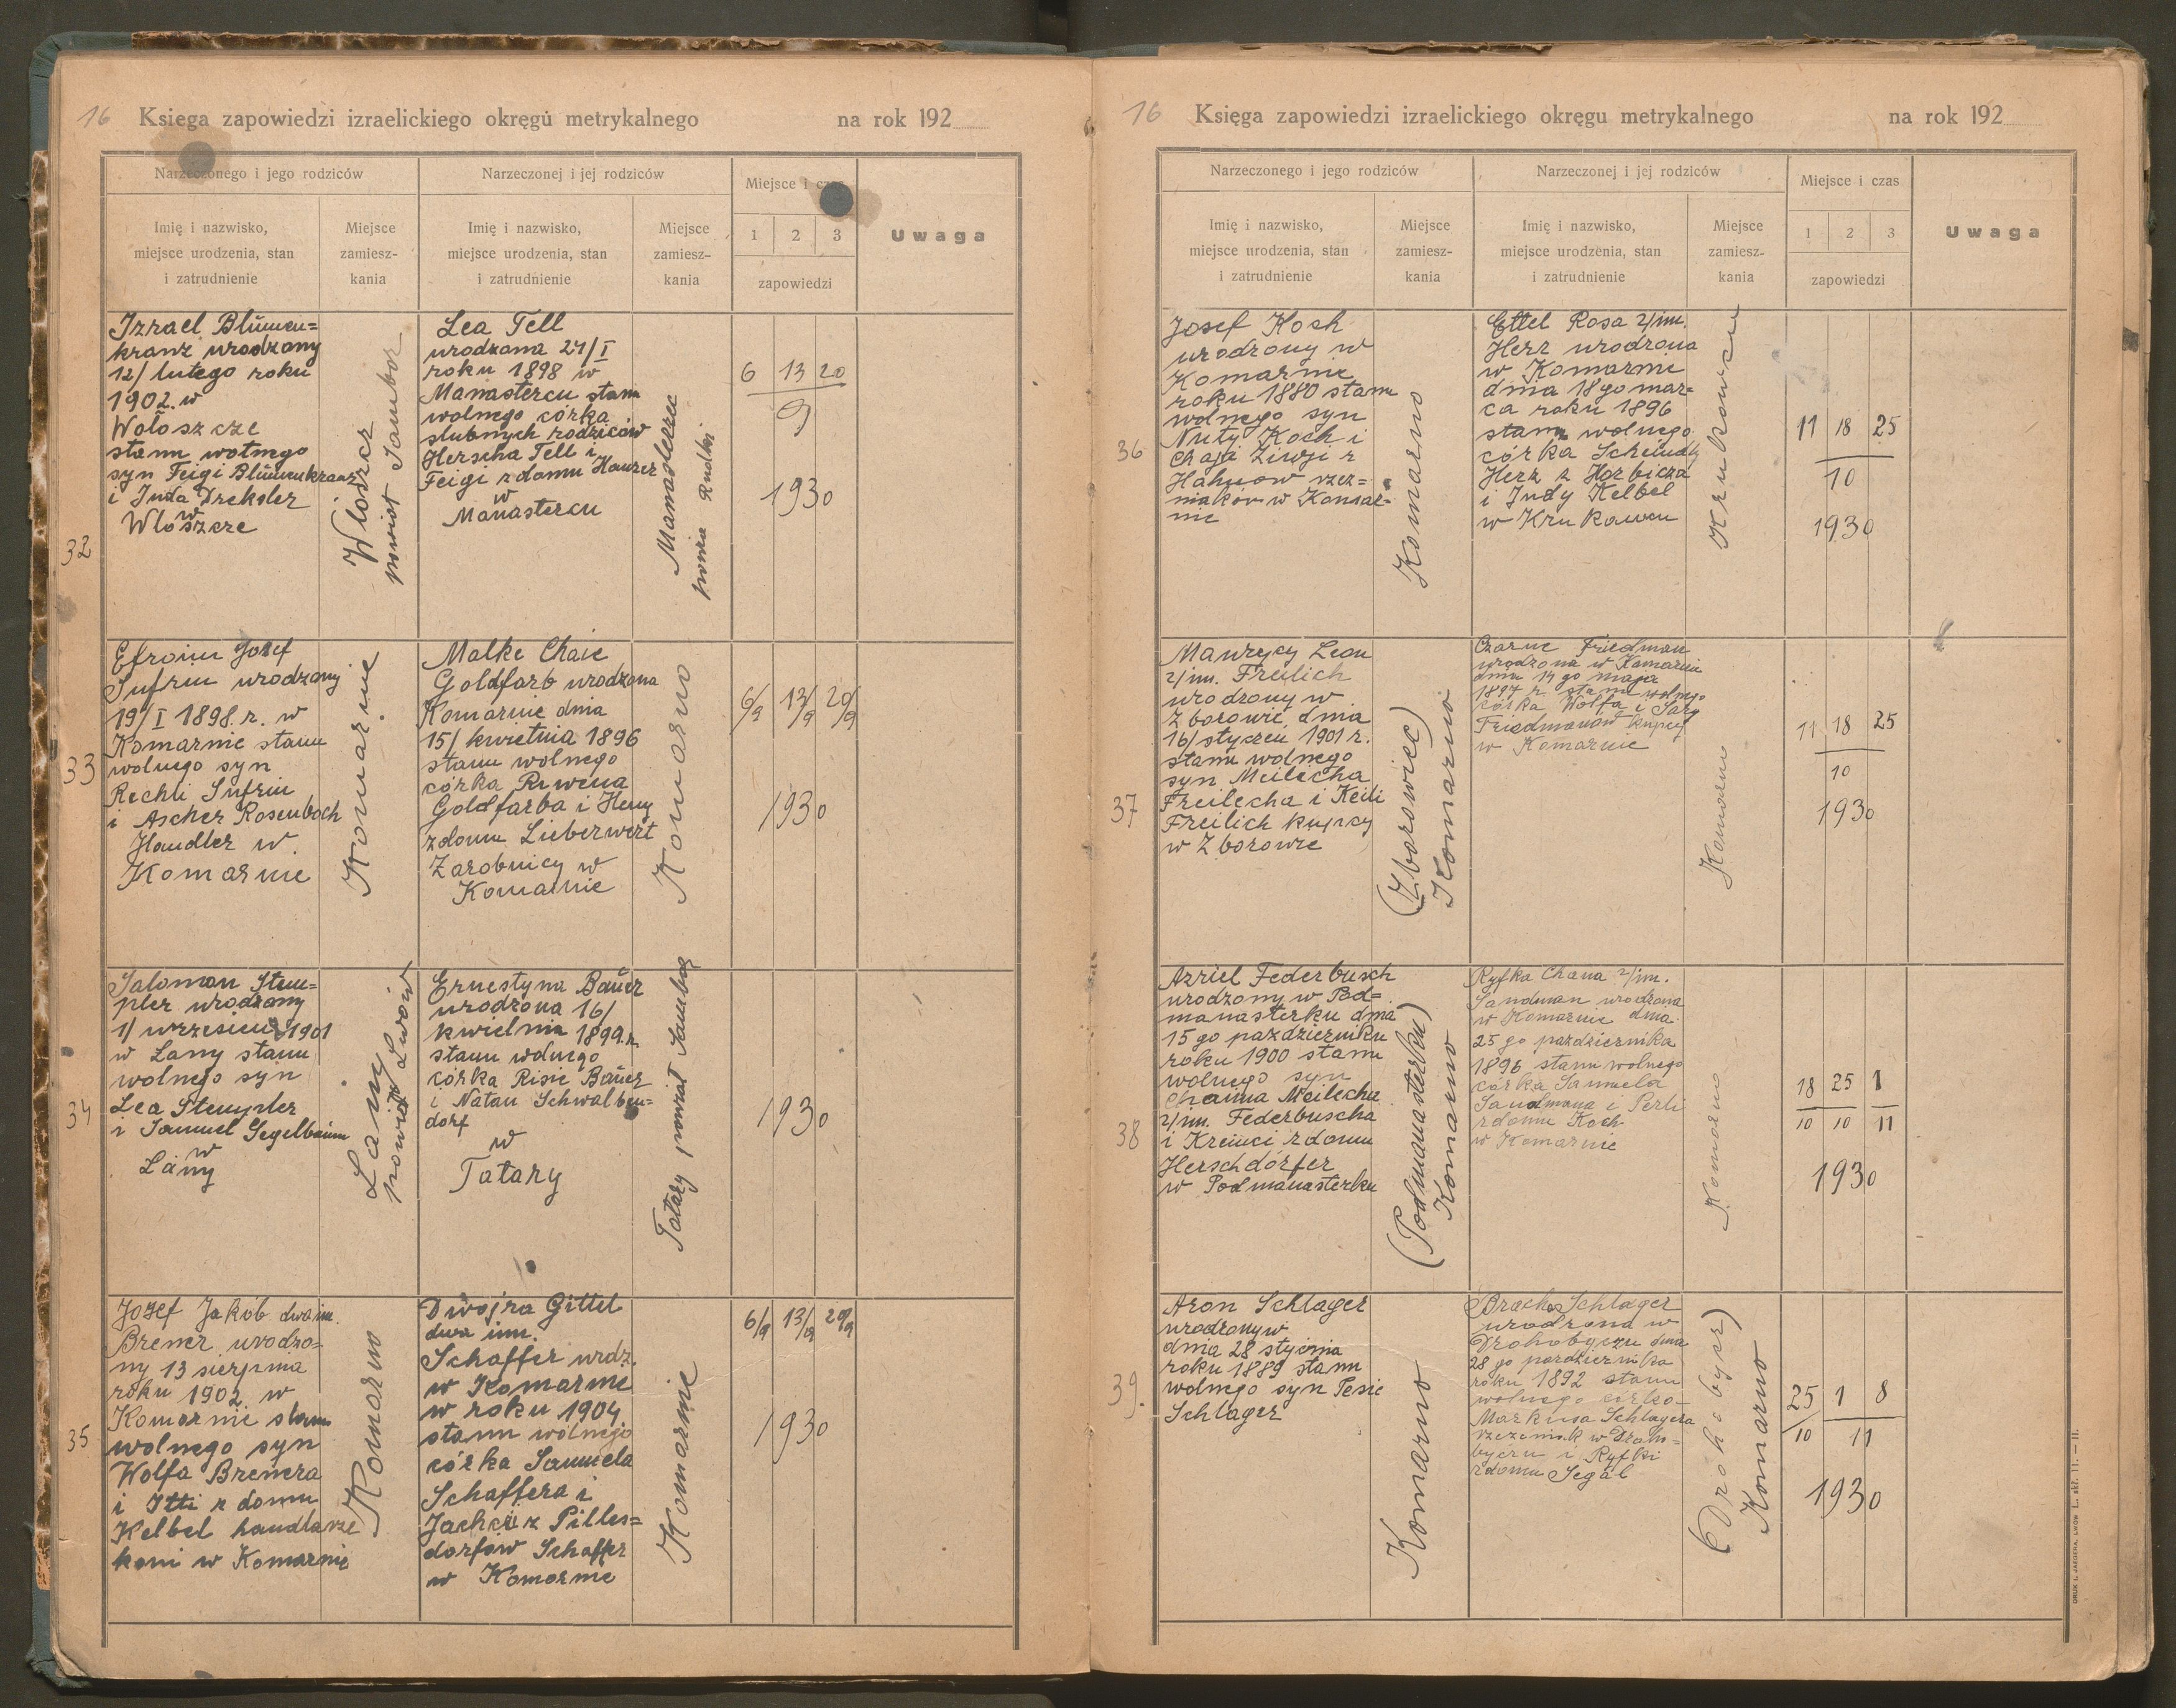 16 Księga zapowiedzi izraelickiego okręgu metrykalnego na rok 192
Narzeczonego i jego rodziców
Narzeczonej i jej rodziców
Miejsce i czas
Uwaga
Imię i nazwisko,
miejsce urodzenia, stan
i zatrudnienie
Miejsce
zamiesz-
kania
Imię i nazwisko,
miejsce urodzenia, stan
i zatrudnienie
Miejsce
zamiesz-
kania
1 2 3
zapowiedzi
32
Izrael Blümen=
kranz urodzony
12/ lutego roku
1902. w
Woloszcze
stanu wolnego
syn Feigi Blümenkranz
i Juda Dreksler
w
Wloszcze
Wloszcz
powiat Sambor
Lea Tell
urodzona 21/I
roku 1898 w
Manastercu stanu
wolnego córka
slubnych rodziców
Herscha Tell i
Feigi z domu Hauzer
w
Manastercu
Manasterec
Rudki
6 13 20
9
1930
33
Efroim Josef
Sufrin urodzony
19/I 1898. r. w
Komarnie stanu
wolnego syn
Rechli Sufrin
i Ascher Rosenboch
Handler w
Komarnie
Komarnie
Malke Chaie
Goldfarb urodzona
Komarnie dnia
15/ kwietnia 1896
stanu wolnego
córka Rewena
Goldfarba i Heny
z domu Lieberwert
Zarobnicy w
Komarnie
Komarno
6/9 13/9 20/9
1930
34
Saloman Stem=
pler urodzony
1/ wrzesien 1901
w Lany stanu
wolnego syn
Lea Stempler
i Samuel Segelbaum
w
Lany
Lany
powiat Lwów
Ernestyna Baüer
urodzona 16/
kwietnia 1899. r.
stanu wolnego
córka Risie Baüer
i Natan Schwalben=
dorf
w
Tatary
Tatary powiat Sambor
1930
35
Jozef Jakób dwa im.
Brener urodzo=
ny 13 sierpnia
roku 1902 w
Komarnie stanu
wolnego syn
Wolfa Brenera
i Itti z domu
Kelbel handlarze
koni w Komarnie
Komarno
Dwojra Gittel
dwa im.
Schaffer urdz.
w Komarnie
w roku 1904
stanu wolnego
córka Samuela
Schaffera i
Jachci z Pilles=
dorfów Schaffer
w Komarnie
Komarnie
6/9 13/9 20/9
1930
16 Księga zapowiedzi izraelickiego okręgu metrykalnego na rok 192
Narzeczonego i jego rodziców
Narzeczonej i jej rodziców
Miejsce i czas
Uwaga
Imię i nazwisko,
miejsce urodzenia, stan
i zatrudnienie
Miejsce
zamiesz-
kania
Imię i nazwisko,
miejsce urodzenia, stan
i zatrudnienie
Miejsce
zamiesz-
kania
1 2 3
zapowiedzi
36
Josef Koch
urodzony w
Komarnie
roku 1880 stanu
wolnego syn
Nuty Koch i
Chaja Ziwji z
Hahnow rzez=
niaków w Komar=
nie
Komarno
Ettel Rosa 2/im.
Herz urodzona
w Komarnie
dnia 18 go mar=
ca roku 1896
stanu wolnego
córka Scheindly
Herz z Horbicza
i Judy Kelbel
w Krukowcu
Krukowcu
11 18 25
10
1930
37
Maurycy Leon
2/im. Freilich
urodzony w
Zborowie, dnia
16/ styczeu 1901 r.
stanu wolnego
syn Meilecha
Freilecha i Keili
Freilich kupcy
w Zborowie
(Zborowiec)
Komarno
Czarne Friedman
urodzona w Komarnie
dnia 14 go maja
1897 r. stanu wolnego
córka Wolfa i Sary
Friedmanów kupcy
w Komarnie
Komarno
11 18 25
10
1930
38
Azriel Federbusch
urodzony w Pod=
manasterku dnia
15 go pazdziernika
roku 1900 stanu
wolnego syn
Chaima Meilecha
2/im. Federbuscha
i Kreinci z domu
Herschdörfer
w Podmanasterku
(Podmanasterku)
Komarno
Ryfka Chana 2/im.
Sandman urodzona
w Komarnie dnia
25 go pazdziernika
1896 stanu wolnego
córka Samuela
Sandmana i Perli
z domu Koch
w Komarnie
Komarno
18 25 1
10 10 11
1930
39.
Aron Schlager
urodzony w
dnia 28 stycnia
roku 1889 stanu
wolnego syn Pesie
Schlager
Komarno
Brache Schlager
urodzona w
Drohobyczu dnia
28 go pazdziernika
roku 1892 stanu
wolnego córka
Markusa Schlagera
rzezniak w Droho=
byczu i Ryfki
z domu Segal
(Drohobycz)
Komarno
25 1 8
10 11
1930
DRUK I. JAEGERA, LWÓW